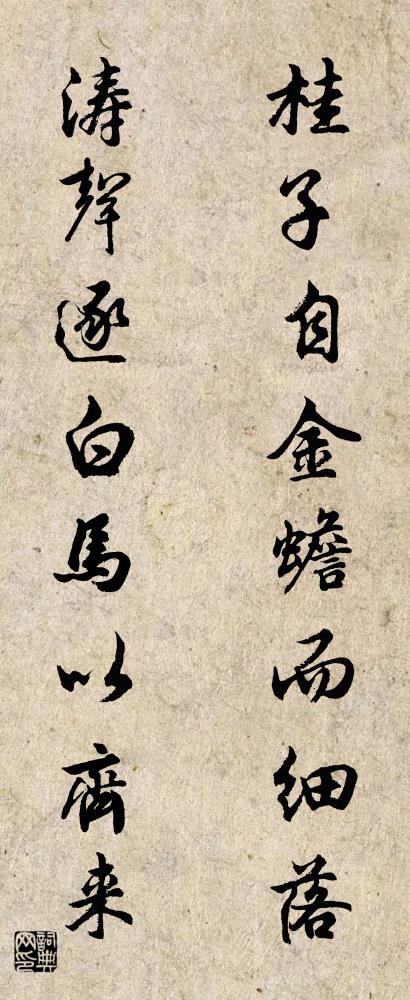 桂子自金蟾而细落
涛聲逐白馬以齊来
詞典网印